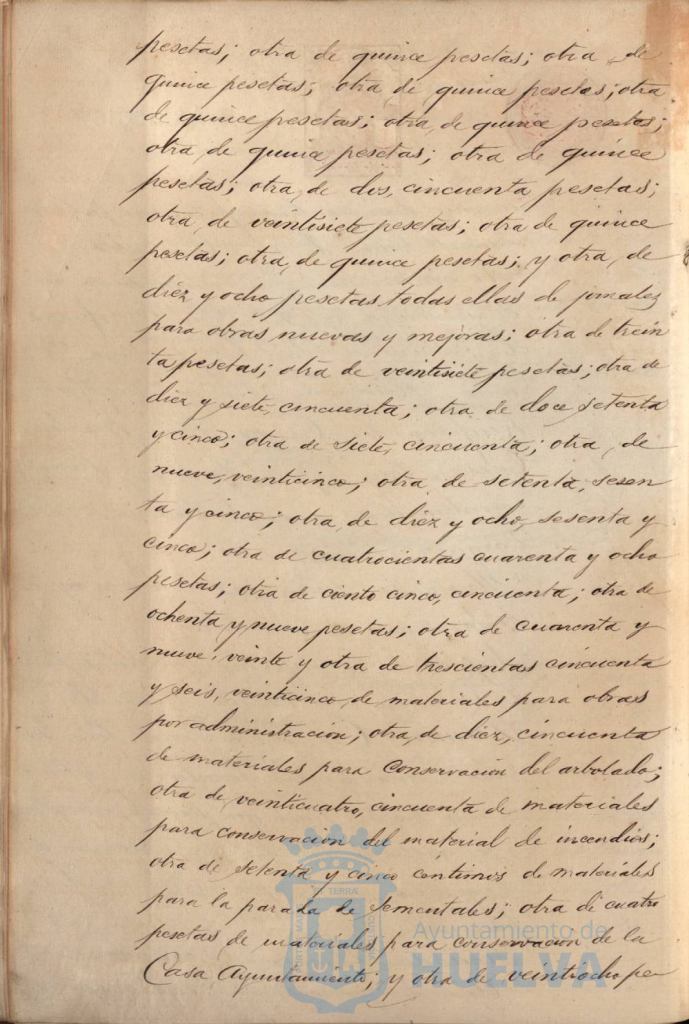 pesetas; otra de quince pesetas; otra de
quince pesetas; otra de quince pesetas; otra
de quince pesetas; otra, de quince pesetas;
otra, de quince pesetas; otra de quince
pesetas; otra, de dos, cincuenta pesetas;
otra, de veintisiete pesetas; otra de quince
pesetas; otra, de quince pesetas; y otra, de
diez y ocho pesetas todas ellas de jornales
para obras nuevas y mejoras; otra de trein
ta pesetas; otra de veintisiete pesetas; otra de
diez y siete, cincuenta; otra de doce setenta
y cinco; otra de siete, cincuenta; otra, de
nueve, veinticinco; otra de setenta, sesen
ta y cinco; otra, de diez y ocho, sesenta y
cinco; otra de cuatrocientas cuarenta y ocho
pesetas; otra de ciento cinco, cincuenta; otra de
ochenta y nueve pesetas; otra de cuarenta y
nueve, veinte y otra de trescientas cincuenta
y seis, veinticinco, de materiales para obras
por administración; otra, de diez, cincuenta
de materiales para conservación del arbolado;
otra de veinticuatro, cincuenta de materiales
para conservación del material de incendios;
otra de setenta y cinco céntimos de materiales
para la parada de sementales; otra de cuatro
pesetas de materiales para conservación de la
Casa Ayuntamiento; y otra de veintiocho pe-
Ayuntamiento de
HUELVA